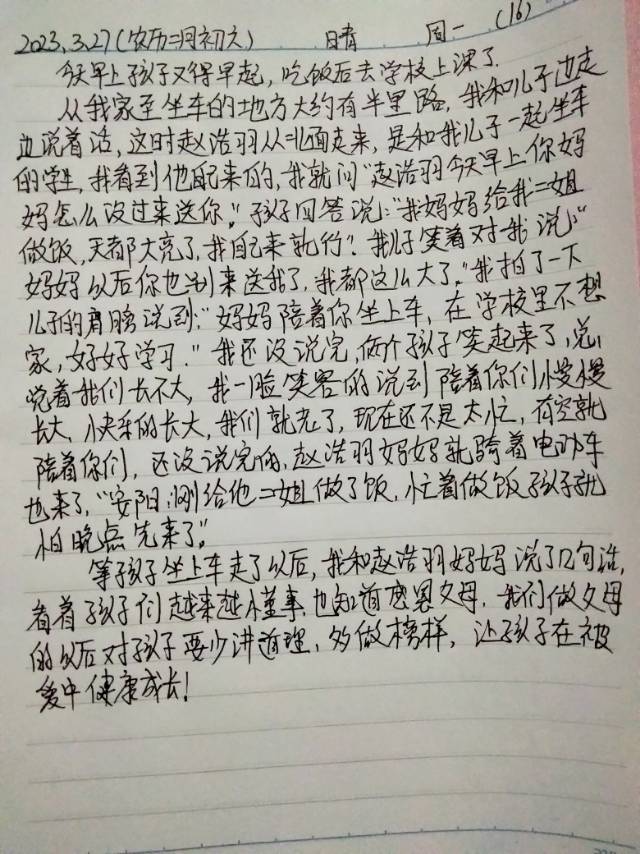 2023.3.27(农历二月初六) 晴 周一 (16)
今天早上孩子又得早起，吃饭后去学校上课了.
从我家至坐车的地方大约有半里路，我和儿子边走
边说着话，这时赵浩羽从北面走来，是和我儿子一起坐车
的学生，我看到他自己来的，我就问"赵浩羽今天早上你妈
妈怎么没过来送你。"孩子回答说："我妈妈给我二姐
做饭，天都大亮了，我自己来就行？我儿子笑着对我说："
妈妈以后你也别来送我了，我都这么大了。"我拍了一下
儿子的肩膀说到："妈妈陪着你坐上车，在学校里不想
家，好好学习."我还没说完，俩个孩子笑起来了，总
觉着我们长不大，我一脸笑容的说到陪着你们慢慢
长大，快乐的长大，我们就老了，现在还不是太忙，有空就
陪着你们，还没说完呢，赵浩羽妈妈就骑着电动车
也来了，"安阳，刚给他二姐做了饭，忙着做饭孩子就
怕晚点先来了。"
等孩子坐上车走了以后，我和赵浩羽妈妈说了几句话，
看着孩子们越来越懂事，也知道感恩父母，我们做父母
的以后对孩子要少讲道理，多做榜样，让孩子在被
爱中健康成长！